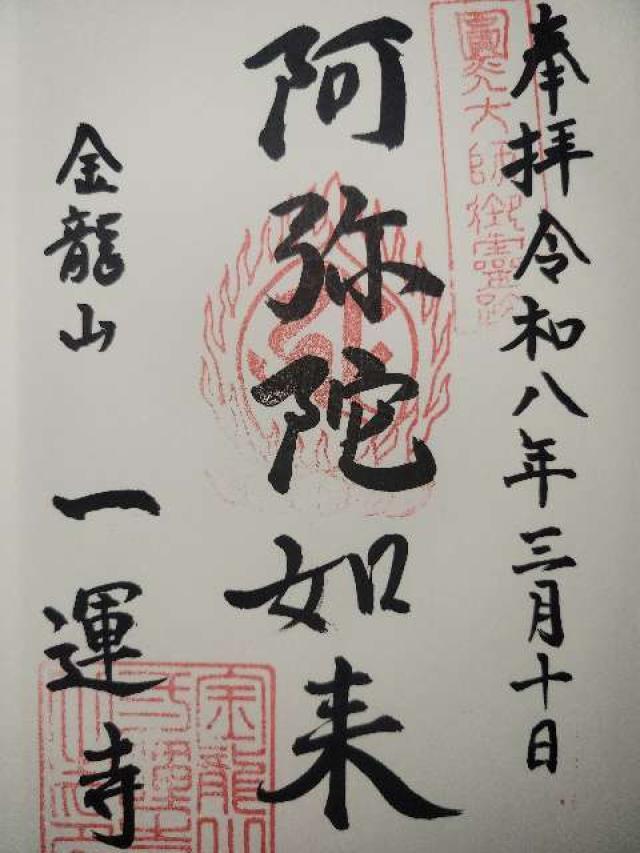 奉拝令和八年三月十日
圓光大師御靈跡
阿弥陀如来
金龍山
一運寺